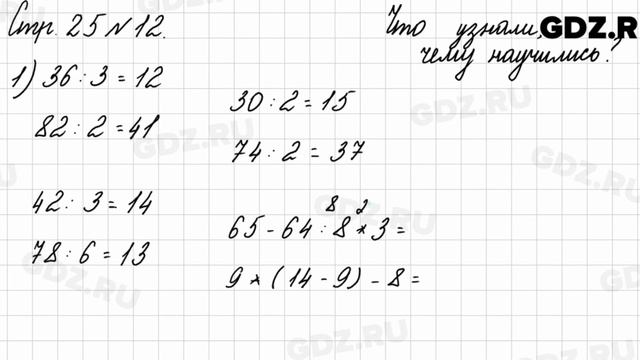 Стр. 25 № 12.
Что узнали,
чему научились?
GDZ.R
1) 36 : 3 = 12
82 : 2 = 41
42 : 3 = 14
78 : 6 = 13
30 : 2 = 15
74 : 2 = 37
8 2
65 - 64 : 8 * 3 =
9 * (14 - 9) - 8 =
GDZ.RU
GDZ.RU
GDZ.RU
GDZ.RU
GDZ.RU
GDZ.RU